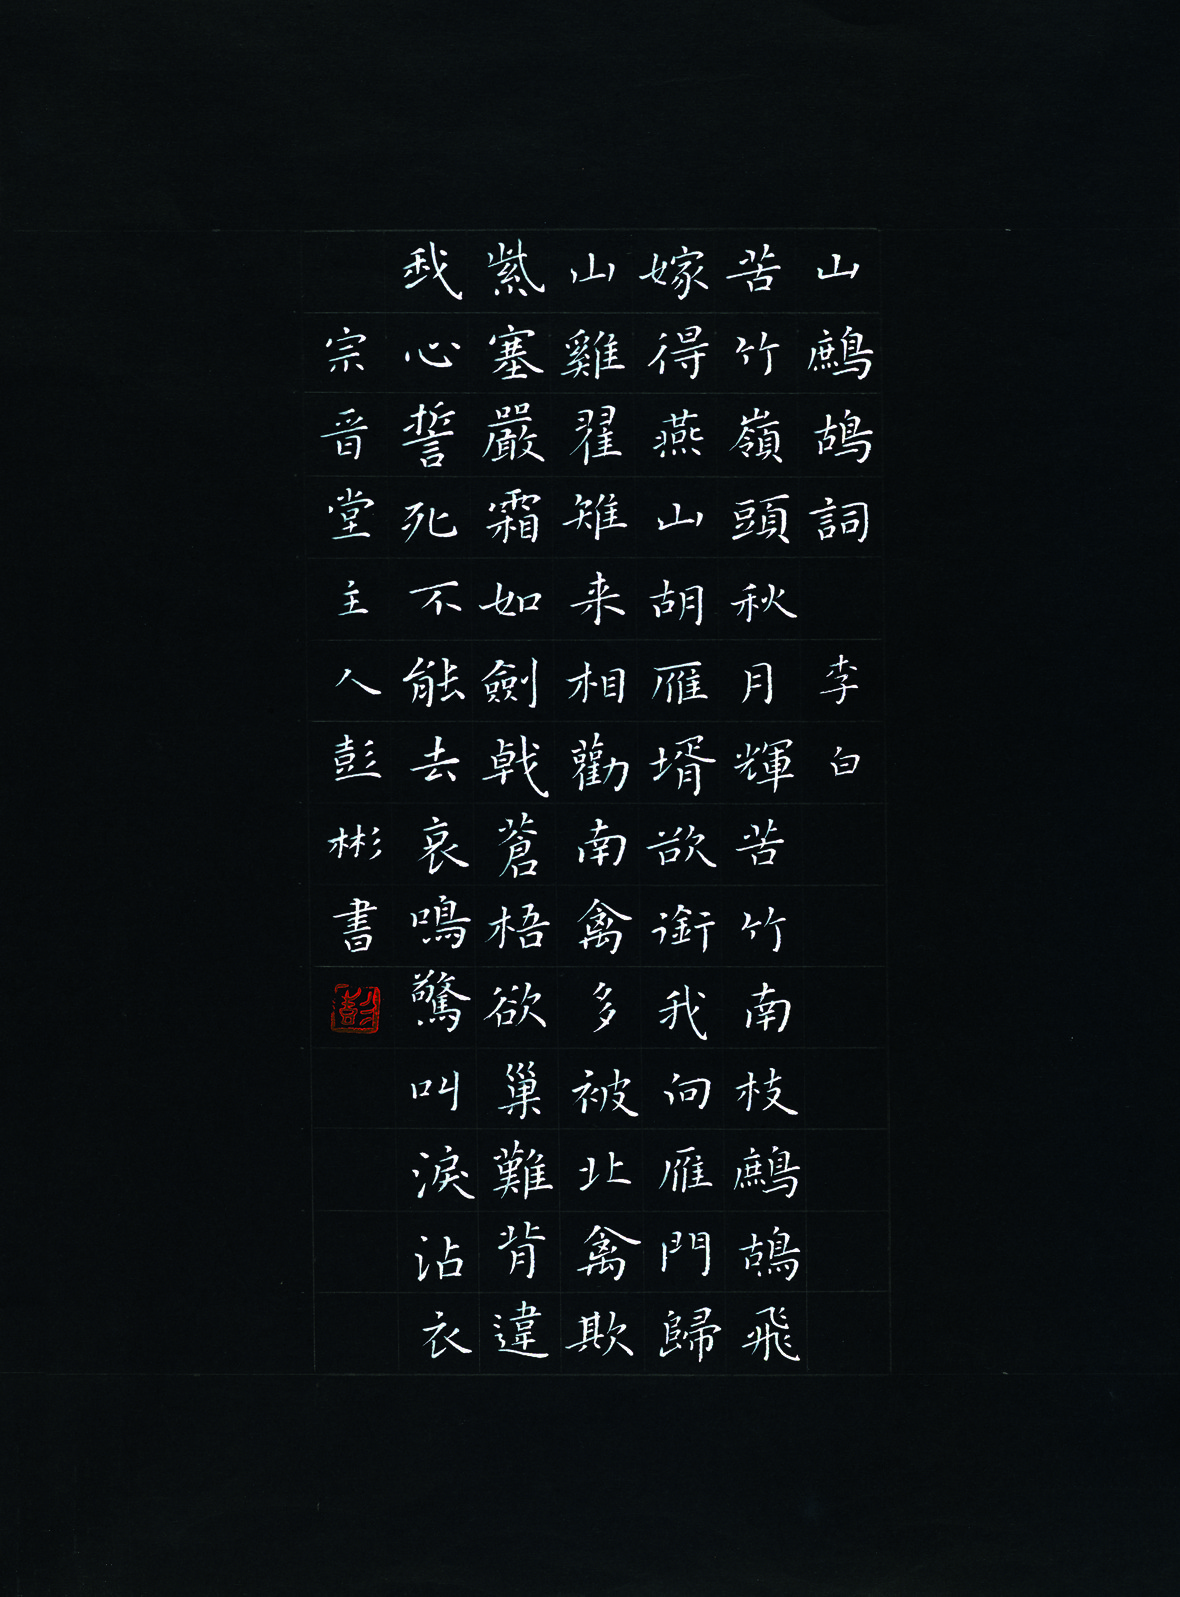 山鷓鴣詞 李白
苦竹嶺頭秋月輝苦竹南枝鷓鴣飛
嫁得燕山胡雁壻欲銜我向雁門歸
山雞翟雉来相勸南禽多被北禽欺
紫塞嚴霜如劍戟蒼梧欲巢難背違
我心誓死不能去哀鳴驚叫淚沾衣
宗晋堂主人彭彬書
彭